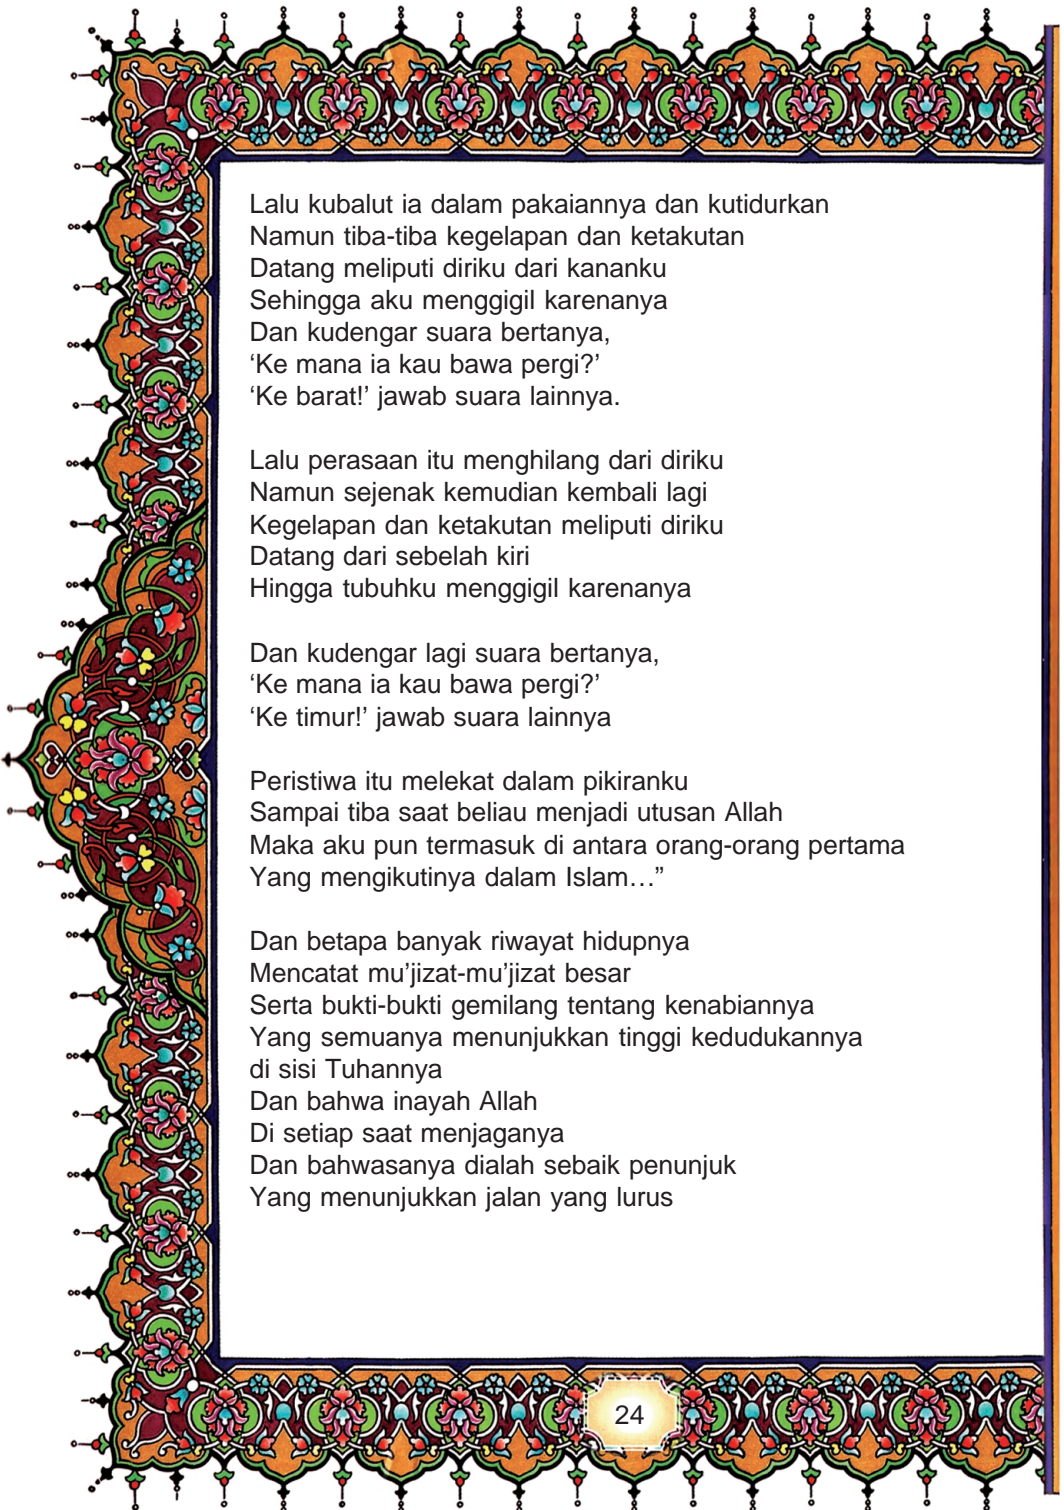 Lalu kubalut ia dalam pakaiannya dan kutidurkan
Namun tiba-tiba kegelapan dan ketakutan
Datang meliputi diriku dari kananku
Sehingga aku menggigil karenanya
Dan kudengar suara bertanya,
‘Ke mana ia kau bawa pergi?’
‘Ke barat!’ jawab suara lainnya.
Lalu perasaan itu menghilang dari diriku
Namun sejenak kemudian kembali lagi
Kegelapan dan ketakutan meliputi diriku
Datang dari sebelah kiri
Hingga tubuhku menggigil karenanya
Dan kudengar lagi suara bertanya,
‘Ke mana ia kau bawa pergi?’
‘Ke timur!’ jawab suara lainnya
Peristiwa itu melekat dalam pikiranku
Sampai tiba saat beliau menjadi utusan Allah
Maka aku pun termasuk di antara orang-orang pertama
Yang mengikutinya dalam Islam…”
Dan betapa banyak riwayat hidupnya
Mencatat mu’jizat-mu’jizat besar
Serta bukti-bukti gemilang tentang kenabiannya
Yang semuanya menunjukkan tinggi kedudukannya
di sisi Tuhannya
Dan bahwa inayah Allah
Di setiap saat menjaganya
Dan bahwasanya dialah sebaik penunjuk
Yang menunjukkan jalan yang lurus
24